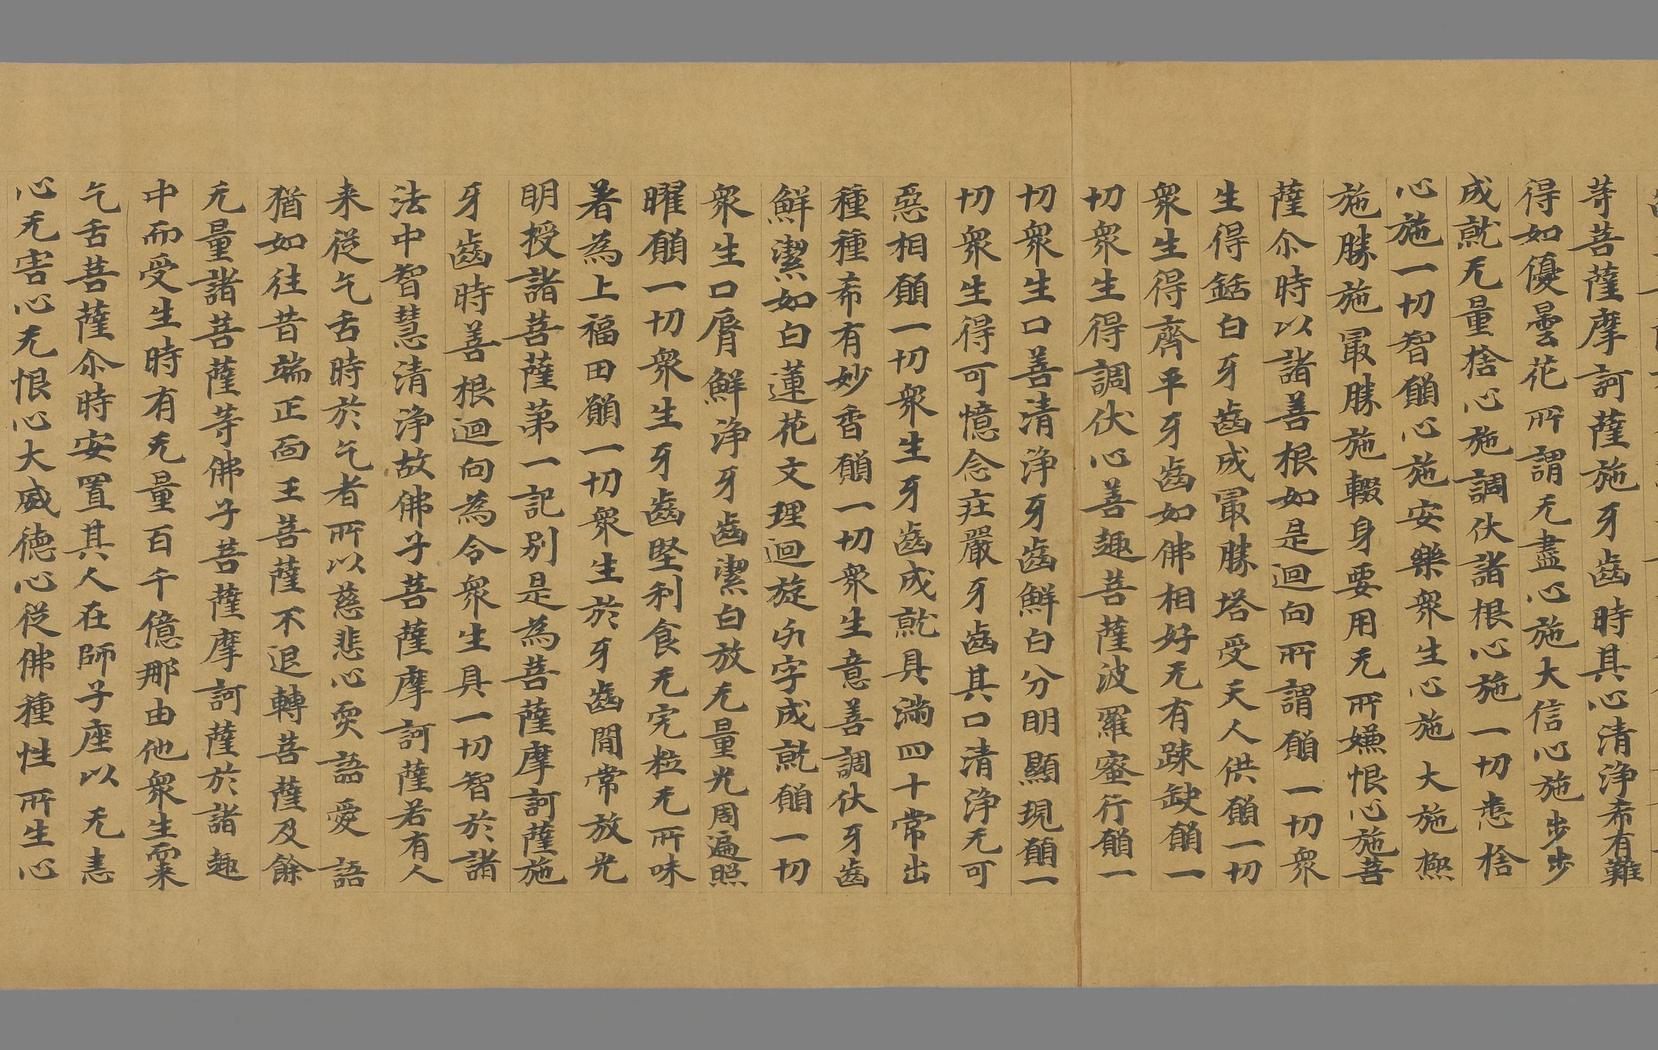 等菩薩摩訶薩施牙齒時其心清淨希有難
得如優曇花所謂无盡心施大信心施步步
成就无量捨心施調伏諸根心施一切悉捨
心施一切智願心施安樂衆生心施大施極
施勝施最勝施輟身要用无所嫌恨心施菩
薩尒時以諸善根如是迴向所謂願一切衆
生得銛白牙齒成最勝塔受天人供願一切
衆生得齊平牙齒如佛相好无有踈缺願一
切衆生得調伏心善趣菩薩波羅蜜行願一
切衆生口善清淨牙齒鮮白分明顯現願一
切衆生得可憶念莊嚴牙齒其口清淨无可
惡相願一切衆生牙齒成就具滿四十常出
種種希有妙香願一切衆生意善調伏牙齒
鮮潔如白蓮花文理迴旋卐字成就願一切
衆生口脣鮮淨牙齒潔白放无量光周遍照
曜願一切衆生牙齒堅利食无完粒无所味
著為上福田願一切衆生於牙齒間常放光
明授諸菩薩第一記別是為菩薩摩訶薩施
牙齒時善根迴向為令衆生具一切智於諸
法中智慧清淨故佛子菩薩摩訶薩若有人
来從乞舌時於乞者所以慈悲心耎語愛語
猶如往昔端正面王菩薩不退轉菩薩及餘
无量諸菩薩等佛子菩薩摩訶薩於諸趣
中而受生時有无量百千億那由他衆生而来
乞舌菩薩尒時安置其人在師子座以无恚
心无害心无恨心大威德心從佛種性所生心